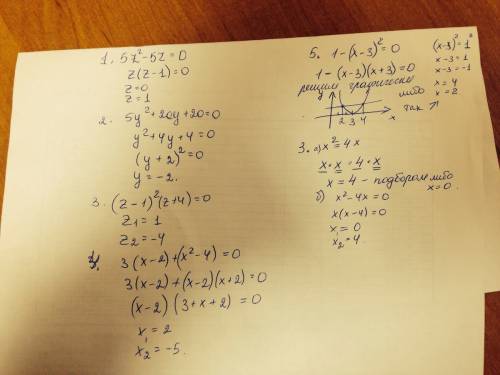 1. 5z²-5z=0
z(z-1)=0
z=0
z=1
2. 5y²+20y+20=0
y²+4y+4=0
(y+2)²=0
y=-2.
3. (z-1)²(z+4)=0
z₁=1
z₂=-4
4. 3(x-2)+(x²-4)=0
3(x-2)+(x-2)(x+2)=0
(x-2)(3+x+2)=0
x₁=2
x₂=-5.
5. 1-(x-3)²=0
1-(x-3)(x+3)=0
решим графически
2 3 4 x
либо
так ↗
(x-3)²=1²
x-3=1
x-3=-1
x=4
x=2
3. а) x²=4x
x·x=4·x
x=4 - подбором либо
x=0.
б) x²-4x=0
x(x-4)=0
x₁=0
x₂=4.